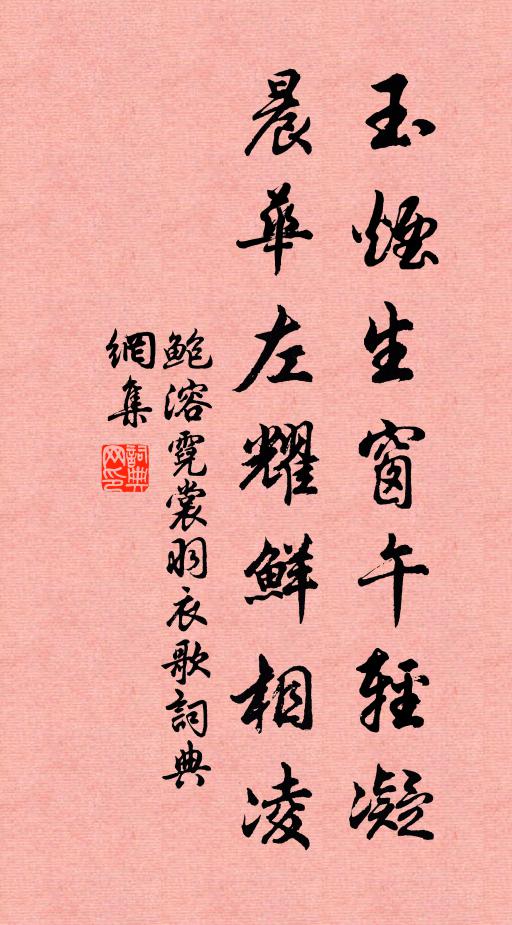 玉煙生窗午輕凝
晨華左耀鮮相凌
鲍溶霓裳羽衣歌詞典
網集
詞典网印